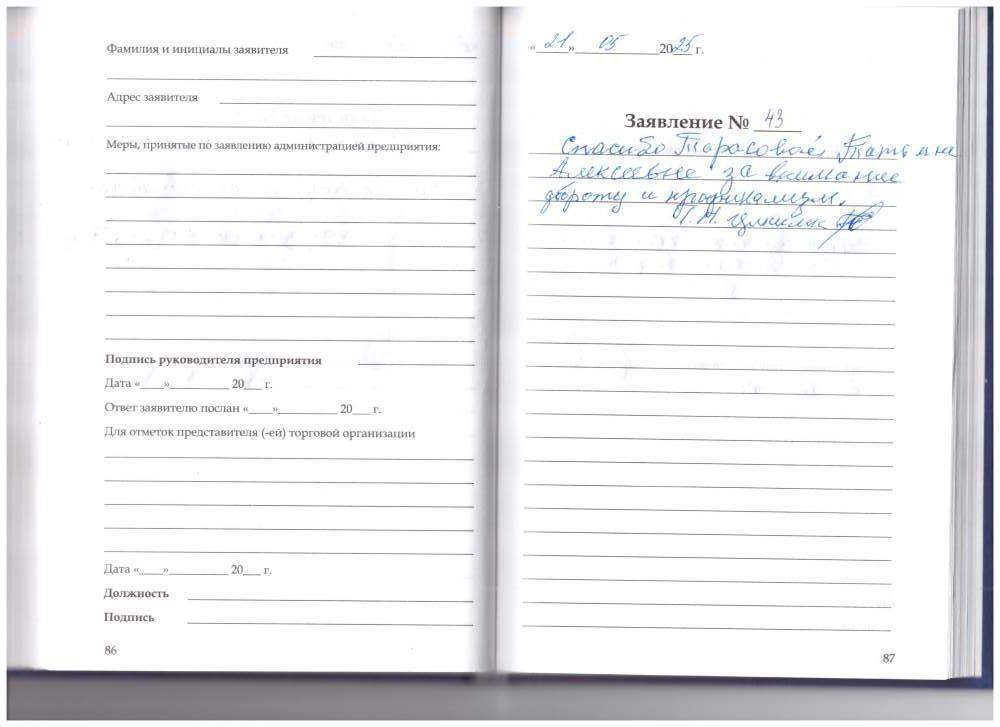 Фамилия и инициалы заявителя
Адрес заявителя
Меры, принятые по заявлению администрацией предприятия:
Подпись руководителя предприятия
Дата «____»__________ 20___ г.
Ответ заявителю послан «____»__________ 20___ г.
Для отметок представителя (-ей) торговой организации
Дата «____»__________ 20___ г.
Должность
Подпись
86
«21» 05 2025 г.
Заявление № 43
Спасибо Тарасовой Татьяне
Алексеевне за внимание
доброту и
Г.Н.
87